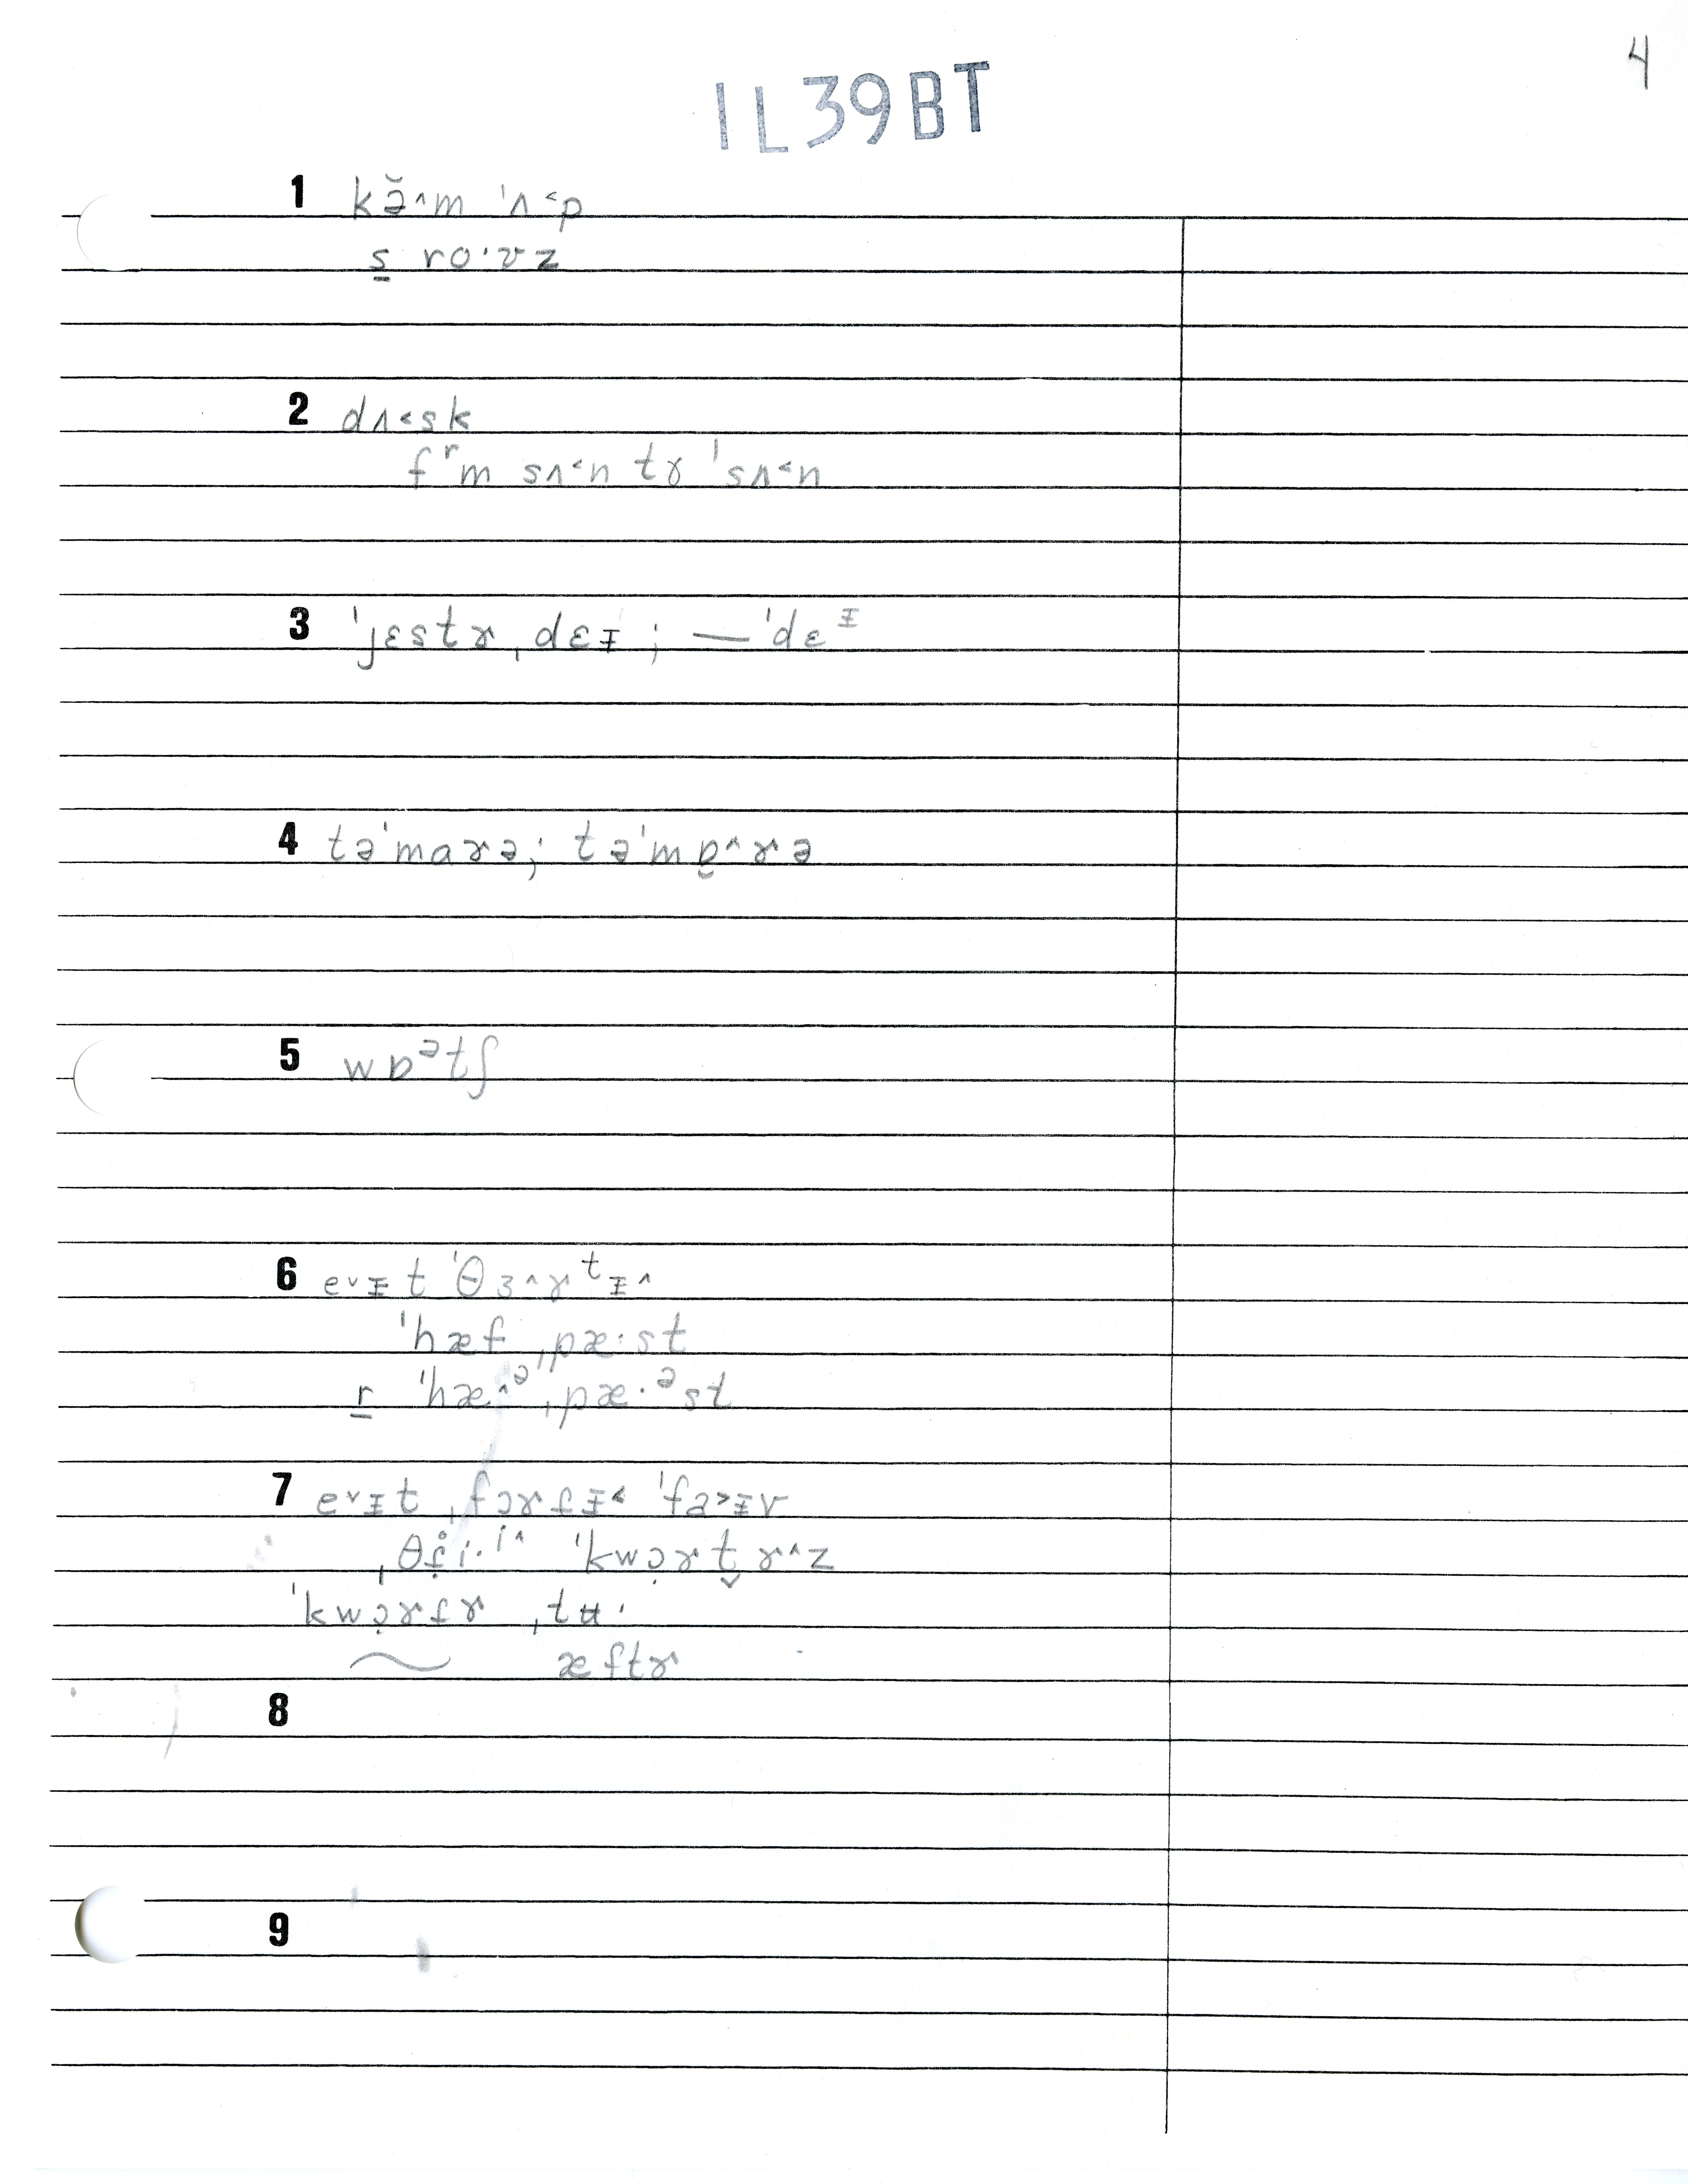 4
IL39BT
1 kə̆^m ˈʌ˂p
s̲ ro·ʊz
2 dʌ˂sk
fʳm sʌ˂n tɤ ˈsʌ˂n
3 ˈjɛstɤˌdɛᵻ; — ˈdɛᵻ
4 təˈmaɤə; təˈmɒ̯^ɤə
5 wɒᵊtʃ
6 e˅ᵻt ˈθɜ^ɤᵗᵻ^
ˈhæfˌpæ·st
r̲ ˈhæ^ᵊˌpæ·ᵊst
7 e˅ᵻt ˌfɔɤfᵻ˂ ˈfa˃ᵻv
ˈkwɔ̣ɤt̬ɤ^z
ˈkwɔ̣ɤfɤ ˌtʉ·
~ æftɤ
8
9